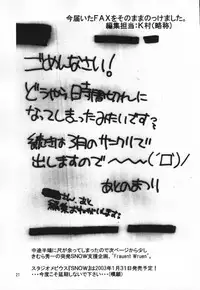 今届いたFAXをそのままのっけました。
編集担当:K村(略称)
ゴめんなさい!
どうやら時間切れに
なってしまったみたいです?
続きは3月のサンクリで
出しますので〜〜〜(´ロ`)/
あとのまつり
※途中半端に尺が余ってしまったので次ページから少し
きむら秀一の突発SNOW支援企画、
スタジオメビウス『SNOW』は2003年1月31日発売予定!
…今度こそ延期しないで下さい…(横顔)
21